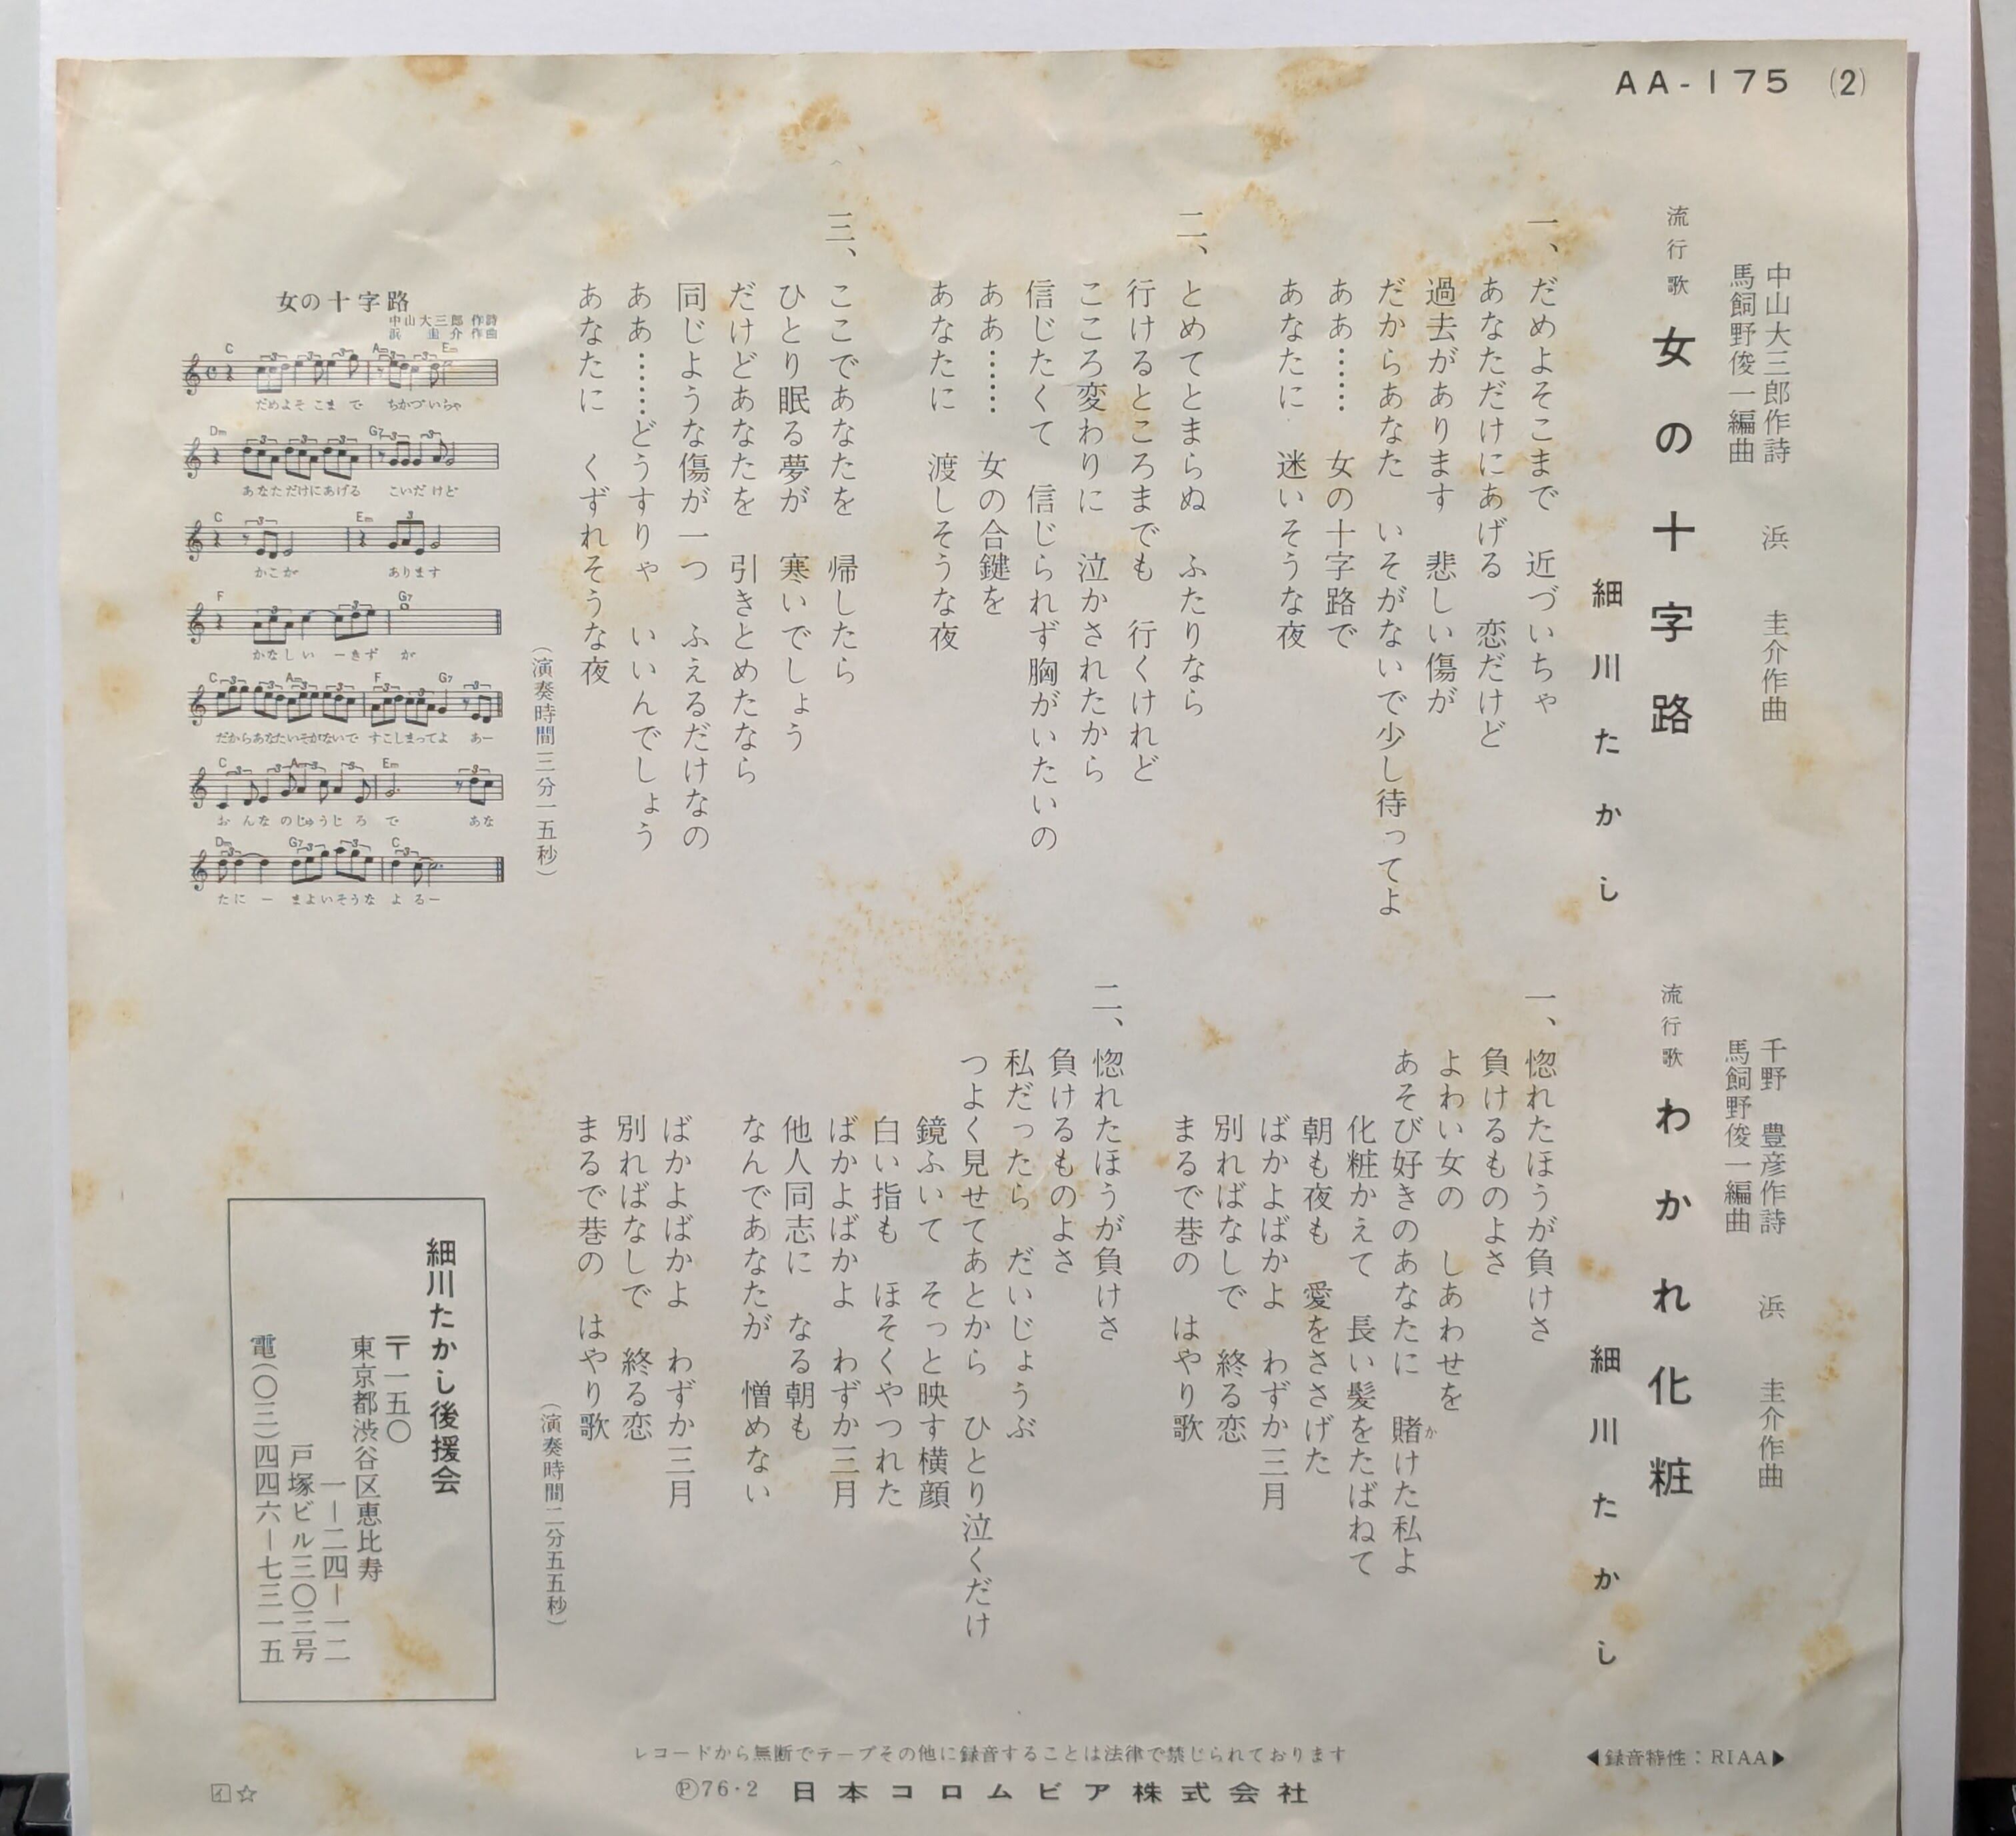 AA-175 (2)
中山大三郎作詩 浜 圭介作曲
馬飼野俊一編曲
流行歌 女の十字路
細川たかし
一、だめよそこまで 近づいちゃ
あなただけにあげる 恋だけど
過去があります 悲しい傷が
だからあなた いそがないで少し待ってよ
ああ…… 女の十字路で
あなたに 迷いそうな夜
二、とめてとまらぬ ふたりなら
行けるところまでも 行くけれど
こころ変わりに 泣かされたから
信じたくて 信じられず胸がいたいの
ああ…… 女の合鍵を
あなたに 渡しそうな夜
三、ここであなたを 帰したら
ひとり眠る夢が 寒いでしょう
だけどあなたを 引きとめたなら
同じような傷が一つ ふえるだけなの
ああ……どうすりゃ いいんでしょう
あなたに くずれそうな夜
(演奏時間三分一五秒)
女の十字路
中山大三郎 作詩
浜 圭介 作曲
C Am Em
だめよそ こま で ちかづいちゃ
Dm G7
あなただけにあげる こいだ けど
C Em
かこが あります
F G7
かなし い ーきず が
C Am F G7
だからあなたいそがないで すこしまってよ あー
C Am Em
お んな のじゅうじ ろ で あな
Dm G7 C
たに ー まよいそうな よ るー
千野 豊彦作詩 浜 圭介作曲
馬飼野俊一編曲
流行歌 わかれ化粧
細川たかし
一、惚れたほうが負けさ
負けるものよさ
よわい女の しあわせを
あそび好きのあなたに 賭けた私よ
か
化粧かえて 長い髪をたばねて
朝も夜も 愛をささげた
ばかよばかよ わずか三月
別ればなしで 終る恋
まるで巷の はやり歌
二、惚れたほうが負けさ
負けるものよさ
私だったら だいじょうぶ
つよく見せてあとから ひとり泣くだけ
鏡ふいて そっと映す横顔
白い指も ほそくやつれた
ばかよばかよ わずか三月
他人同志に なる朝も
なんであなたが 憎めない
ばかよばかよ わずか三月
別ればなしで 終る恋
まるで巷の はやり歌
(演奏時間二分五五秒)
細川たかし後援会
〒一五〇
東京都渋谷区恵比寿
一ー二四ー一二
戸塚ビル三〇三号
電(〇三)四四六ー七三一五
レコードから無断でテープその他に録音することは法律で禁じられております
◀録音特性：RIAA▶
Ⓟ76・2 日本コロムビア株式会社
イ☆